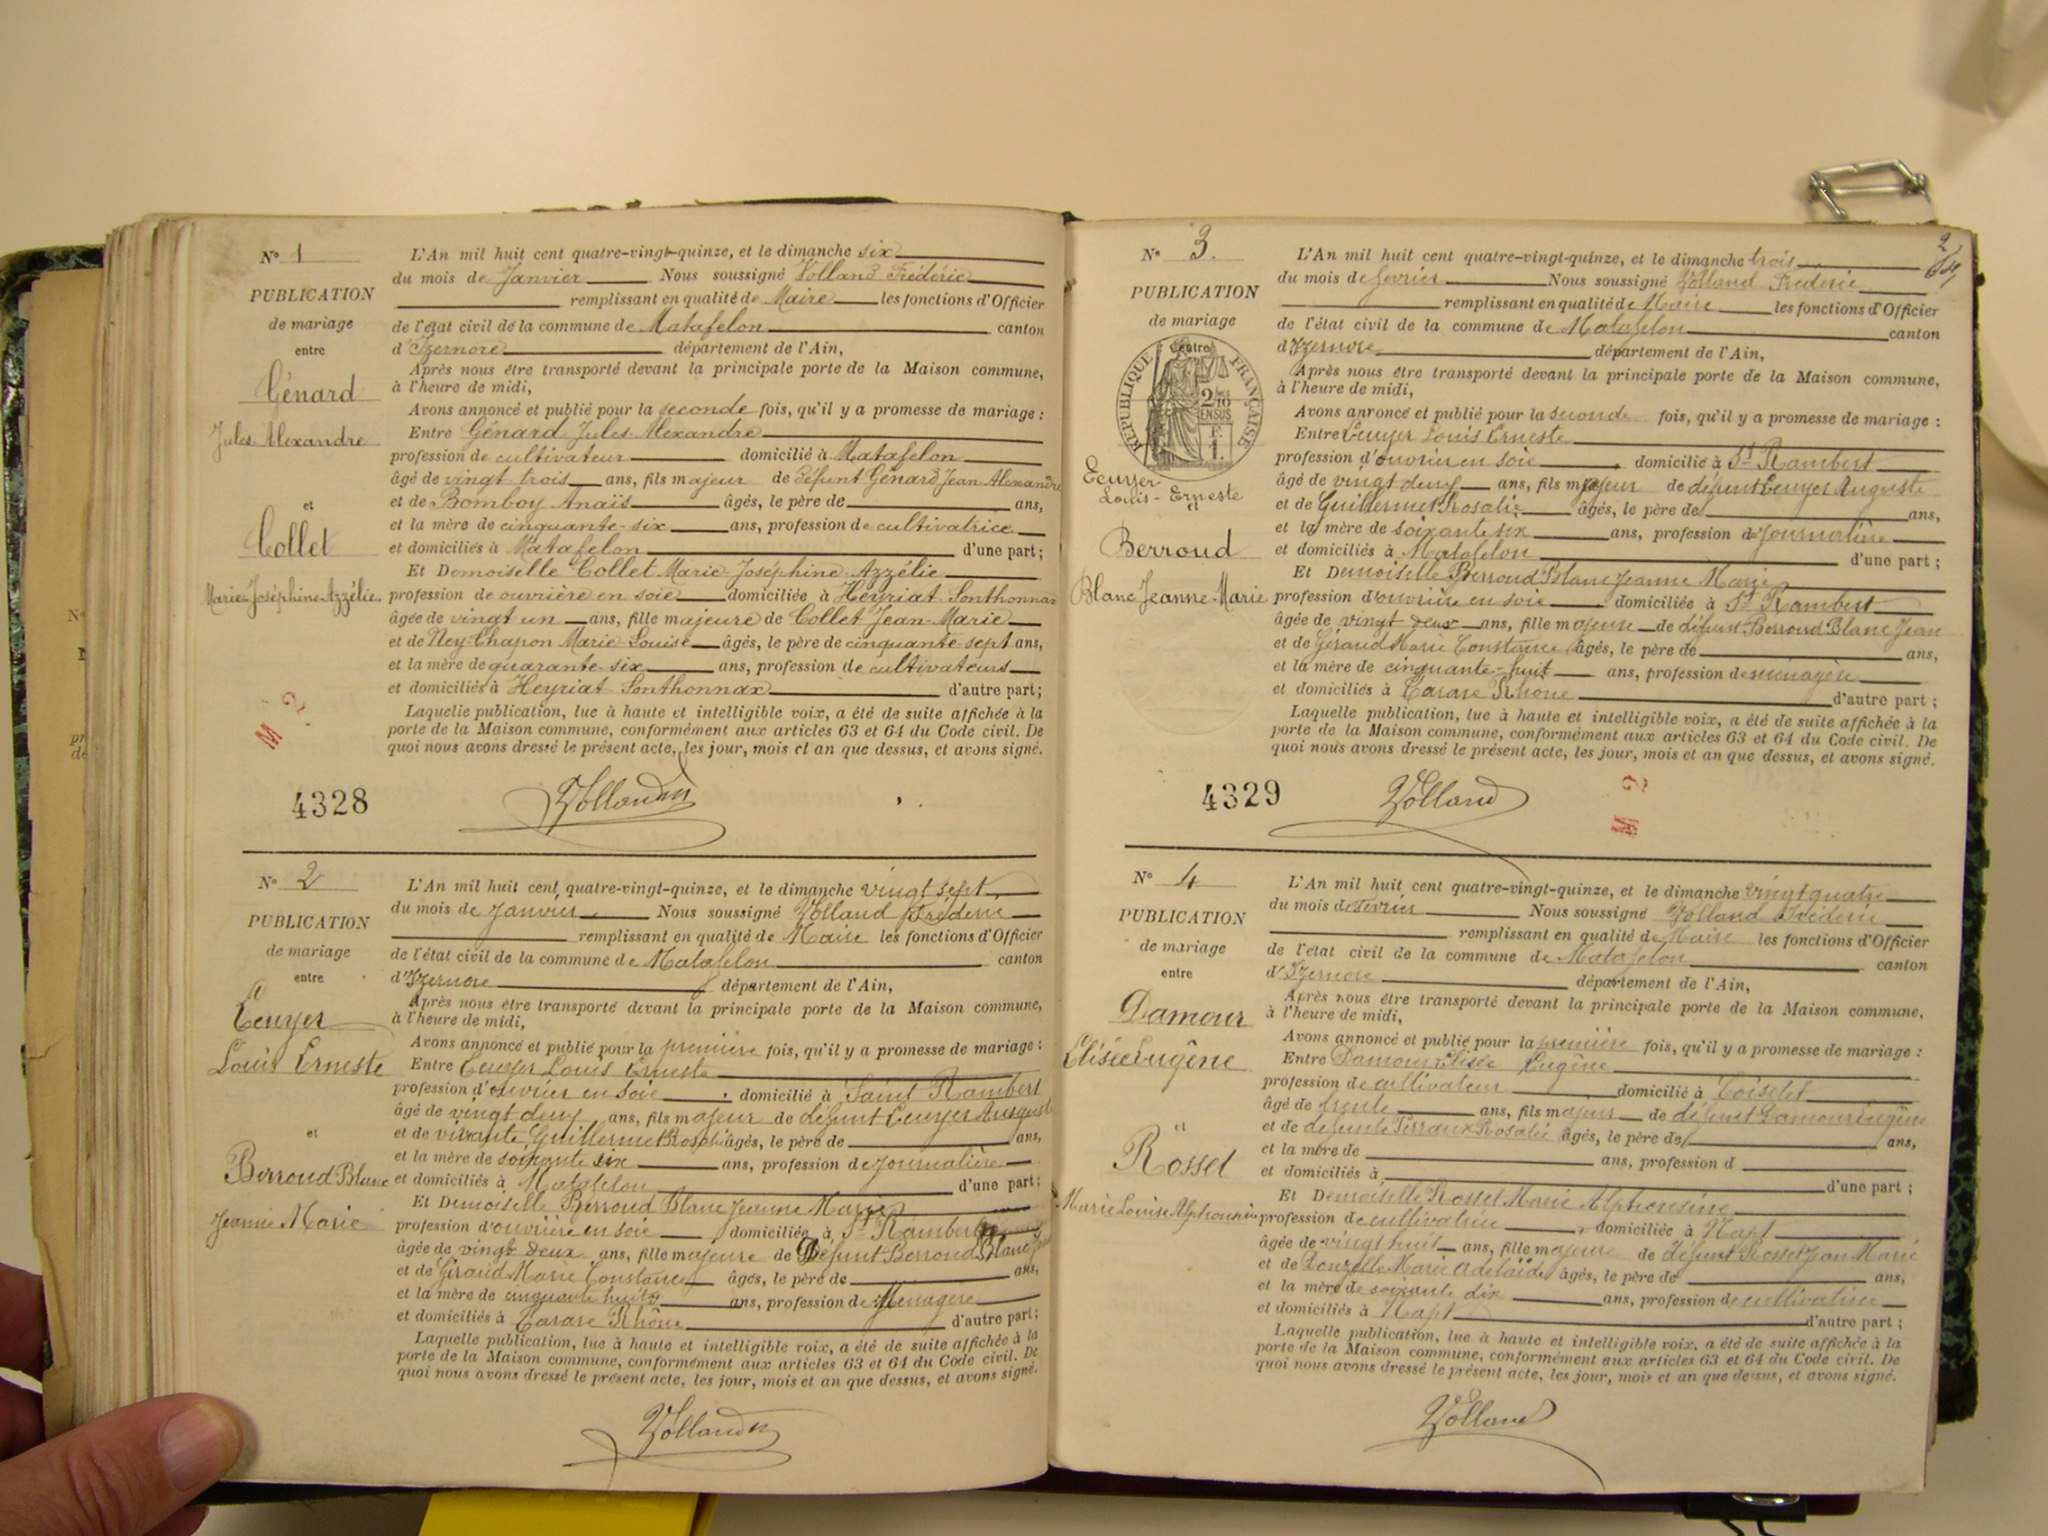 N° 1
PUBLICATION
de mariage
entre
Génard
Jules Alexandre
et
Collet
Marie-Joséphine-Azzélie
L'An mil huit cent quatre-vingt-quinze, et le dimanche six
du mois de Janvier Nous soussigné Volland Frédéric
remplissant en qualité de Maire les fonctions d'Officier
de l'état civil de la commune de Matafelon canton
d'Izernore département de l'Ain,
Après nous être transporté devant la principale porte de la Maison commune,
à l'heure de midi,
Avons annoncé et publié pour la seconde fois, qu'il y a promesse de mariage :
Entre Génard Jules Alexandre
profession de cultivateur domicilié à Matafelon
âgé de vingt trois ans, fils majeur de défunt Génard Jean Alexandre
et de Bomboy Anaïs âgés, le père de ans,
et la mère de cinquante-six ans, profession de cultivatrice
et domiciliés à Matafelon d'une part ;
Et Demoiselle Collet Marie Joséphine Azzélie
profession de ouvrière en soie domiciliée à Heyriat Sonthonnax
âgée de vingt un ans, fille majeure de Collet Jean-Marie
et de Ney-Chapon Marie Louise âgés, le père de cinquante-sept ans,
et la mère de quarante-six ans, profession de cultivateurs
et domiciliés à Heyriat-Sonthonnax d'autre part ;
Laquelle publication, lue à haute et intelligible voix, a été de suite affichée à la
porte de la Maison commune, conformément aux articles 63 et 64 du Code civil. De
quoi nous avons dressé le présent acte, les jour, mois et an que dessus, et avons signé.
M 2
4328
Volland
N° 2
PUBLICATION
de mariage
entre
Ecuyer
Louis Erneste
et
Berroud Blanc
Jeanne Marie
L'An mil huit cent quatre-vingt-quinze, et le dimanche vingt sept
du mois de Janvier Nous soussigné Volland Frédéric
remplissant en qualité de Maire les fonctions d'Officier
de l'état civil de la commune de Matafelon canton
d'Izernore département de l'Ain,
Après nous être transporté devant la principale porte de la Maison commune,
à l'heure de midi,
Avons annoncé et publié pour la première fois, qu'il y a promesse de mariage :
Entre Ecuyer Louis Erneste
profession d'ouvrier en soie domicilié à Saint Rambert
âgé de vingt deux ans, fils majeur de défunt Ecuyer Auguste
et de vivante Guillermet Rosalie âgés, le père de ans,
et la mère de soixante six ans, profession de Journalière
et domiciliés à Matafelon d'une part ;
Et Demoiselle Berroud Blanc Jeanne Marie
profession d'ouvrière en soie domiciliée à St Rambert
âgée de vingt deux ans, fille majeure de Défunt Berroud Blanc Jean
et de Giraud Marie Constance âgés, le père de ans,
et la mère de cinquante huit ans, profession de Ménagère
et domiciliés à Tarare Rhône d'autre part ;
Laquelle publication, lue à haute et intelligible voix, a été de suite affichée à la
porte de la Maison commune, conformément aux articles 63 et 64 du Code civil. De
quoi nous avons dressé le présent acte, les jour, mois et an que dessus, et avons signé.
Volland
2
N° 3.
PUBLICATION
de mariage
entre
RÉPUBLIQUE FRANÇAISE
2/10 EN SUS
F. 1.
Ecuyer
Louis-Erneste
et
Berroud
Blanc Jeanne-Marie
L'An mil huit cent quatre-vingt-quinze, et le dimanche trois
du mois de février Nous soussigné Volland Frédéric
remplissant en qualité de Maire les fonctions d'Officier
de l'état civil de la commune de Matafelon canton
d'Izernore département de l'Ain,
Après nous être transporté devant la principale porte de la Maison commune,
à l'heure de midi,
Avons annoncé et publié pour la seconde fois, qu'il y a promesse de mariage :
Entre Ecuyer Louis Erneste
profession d'ouvrier en soie domicilié à St Rambert
âgé de vingt deux ans, fils majeur de défunt Ecuyer Auguste
et de Guillermet Rosalie âgés, le père de ans,
et la mère de soixante six ans, profession de Journalière
et domiciliés à Matafelon d'une part ;
Et Demoiselle Berroud Blanc Jeanne Marie
profession d'ouvrière en soie domiciliée à St Rambert
âgée de vingt deux ans, fille majeure de défunt Berroud Blanc Jean
et de Géraud Marie Constance âgés, le père de ans,
et la mère de cinquante-huit ans, profession de ménagère
et domiciliés à Tarare Rhône d'autre part ;
Laquelle publication, lue à haute et intelligible voix, a été de suite affichée à la
porte de la Maison commune, conformément aux articles 63 et 64 du Code civil. De
quoi nous avons dressé le présent acte, les jour, mois et an que dessus, et avons signé.
4329
Volland
M 2
N° 4
PUBLICATION
de mariage
entre
Damour
Elisée Eugêne
et
Rosset
Marie Louise Alphonsine
L'An mil huit cent quatre-vingt-quinze, et le dimanche vingt quatre
du mois de Février Nous soussigné Volland Frédéric
remplissant en qualité de Maire les fonctions d'Officier
de l'état civil de la commune de Matafelon canton
d'Izernore département de l'Ain,
Après nous être transporté devant la principale porte de la Maison commune,
à l'heure de midi,
Avons annoncé et publié pour la première fois, qu'il y a promesse de mariage :
Entre Damour Elisée Eugêne
profession de cultivateur domicilié à Coiselet
âgé de trente ans, fils majeur de défunt Damour Eugêne
et de defunte Perraux Rosalie âgés, le père de ans,
et la mère de ans, profession d
et domiciliés à d'une part ;
Et Demoiselle Rosset Marie Alphonsine
profession de cultivatrice domiciliée à Napt
âgée de vingt huit ans, fille majeure de défunt Rosset Jean Marie
et de Ponzelle Marie Adelaïde âgés, le père de ans,
et la mère de soixante dix ans, profession de cultivatrice
et domiciliés à Napt d'autre part ;
Laquelle publication, lue à haute et intelligible voix, a été de suite affichée à la
porte de la Maison commune, conformément aux articles 63 et 64 du Code civil. De
quoi nous avons dressé le présent acte, les jour, mois et an que dessus, et avons signé.
Volland